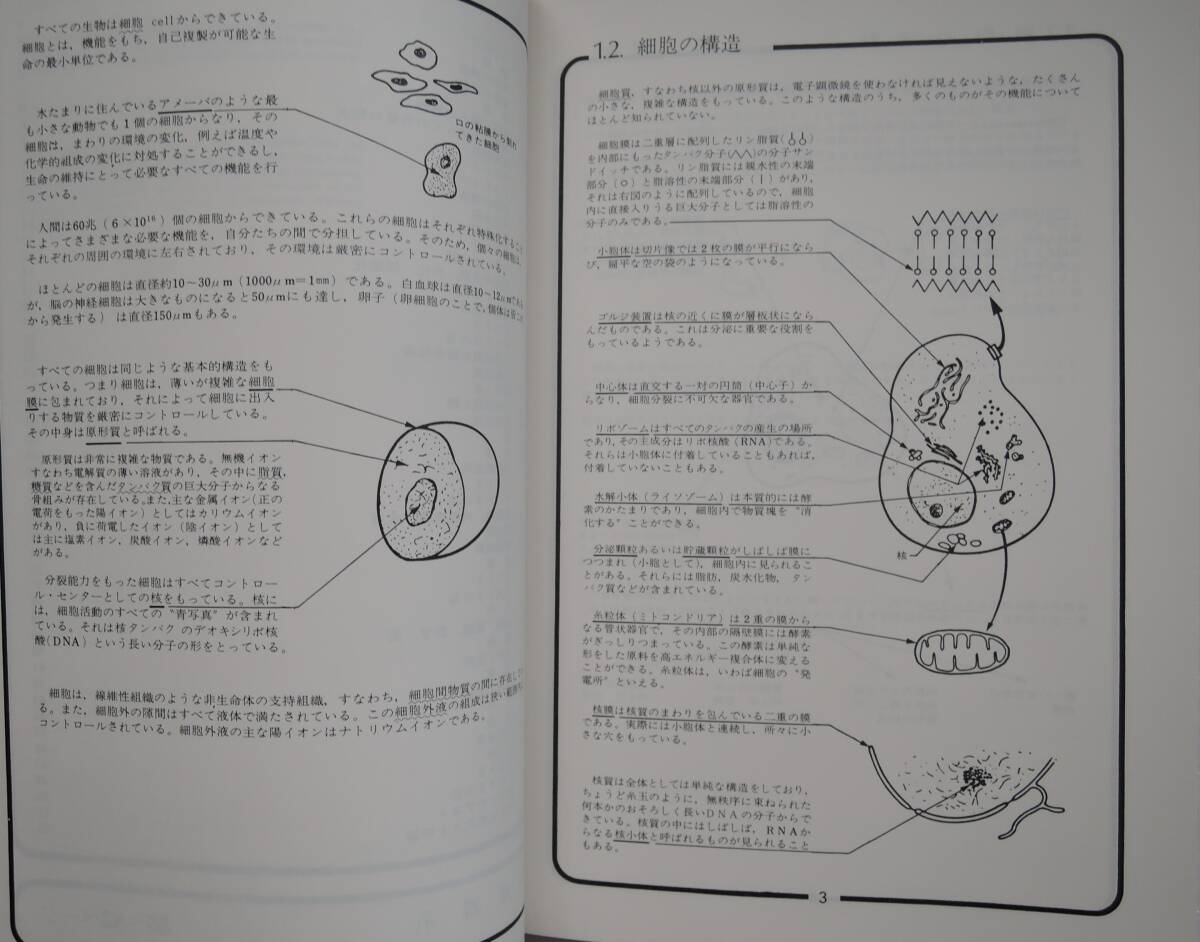 すべての生物は細胞 cellからできている。
細胞とは，機能をもち，自己複製が可能な生
命の最小単位である。
水たまりに住んでいるアメーバのような最
も小さな動物でも1個の細胞からなり，その
細胞は，まわりの環境の変化，例えば温度や
化学的組成の変化に対処することができるし，
生命の維持にとって必要なすべての機能を行
っている。
口の粘膜から剝れ
てきた細胞
人間は60兆（6×10¹⁶）個の細胞からできている。これらの細胞はそれぞれ特殊化すること
によってさまざまな必要な機能を，自分たちの間で分担している。そのため，個々の細胞は，
それぞれの周囲の環境に左右されており，その環境は厳密にコントロールされている。
ほとんどの細胞は直径約10〜30μm（1000μm＝1mm）である。白血球は直径10〜12μmである
が，脳の神経細胞は大きなものになると50μmにも達し，卵子（卵細胞のことで，個体は皆これ
から発生する）は直径150μmもある。
すべての細胞は同じような基本的構造をも
っている。つまり細胞は，薄いが複雑な細胞
膜に包まれており，それによって細胞に出入
りする物質を厳密にコントロールしている。
その中身は原形質と呼ばれる。
原形質は非常に複雑な物質である。無機イオン
すなわち電解質の薄い溶液があり，その中に脂質，
糖質などを含んだタンパク質の巨大分子からなる
骨組みが存在している。また，主な金属イオン（正の
電荷をもった陽イオン）としてはカリウムイオン
があり，負に荷電したイオン（陰イオン）として
は主に塩素イオン，炭酸イオン，燐酸イオンなど
がある。
分裂能力をもった細胞はすべてコントロー
ル・センターとしての核をもっている。核に
は，細胞活動のすべての“青写真”が含まれ
ている。それは核タンパクのデオキシリボ核
酸（DNA）という長い分子の形をとっている。
細胞は，線維性組織のような非生命体の支持組織，すなわち，細胞間物質の間に存在してい
る。また，細胞外の隙間はすべて液体で満たされている。この細胞外液の組成は狭い範囲内に
コントロールされている。細胞外液の主な陽イオンはナトリウムイオンである。
1.2. 細胞の構造
細胞質，すなわち核以外の原形質は，電子顕微鏡を使わなければ見えないような，たくさん
の小さな，複雑な構造をもっている。このような構造のうち，多くのものがその機能について
ほとんど知られていない。
細胞膜は二重層に配列したリン脂質（）
を内部にもったタンパク分子（）の分子サン
ドイッチである。リン脂質には親水性の末端
部分（○）と脂溶性の末端部分（｜）があり，
それは右図のように配列しているので，細胞
内に直接入りうる巨大分子としては脂溶性の
分子のみである。
小胞体は切片像では2枚の膜が平行になら
び，扁平な空の袋のようになっている。
ゴルジ装置は核の近くに膜が層板状になら
んだものである。これは分泌に重要な役割を
もっているようである。
中心体は直交する一対の円筒（中心子）か
らなり，細胞分裂に不可欠な器官である。
リボゾームはすべてのタンパクの産生の場所
であり，その主成分はリボ核酸（RNA）である。
それらは小胞体に付着していることもあれば，
付着していないこともある。
水解小体（ライソゾーム）は本質的には酵
素のかたまりであり，細胞内で物質塊を“消
化する”ことができる。
分泌顆粒あるいは貯蔵顆粒がしばしば膜に
つつまれ（小胞として），細胞内に見られるこ
とがある。それらには脂肪，炭水化物，タン
パク質などが含まれている。
核
糸粒体（ミトコンドリア）は2重の膜から
なる管状器官で，その内部の隔壁膜には酵素
がぎっしりつまっている。この酵素は単純な
形をした原料を高エネルギー複合体に変える
ことができる。糸粒体は，いわば細胞の“発
電所”といえる。
核膜は核質のまわりを包んでいる二重の膜
である。実際には小胞体と連続し，所々に小
さな穴をもっている。
核質は全体としては単純な構造をしており，
ちょうど糸玉のように，無秩序に束ねられた
何本かのおそろしく長いDNAの分子からで
きている。核質の中にはしばしば，RNAか
らなる核小体と呼ばれるものが見られること
もある。
3